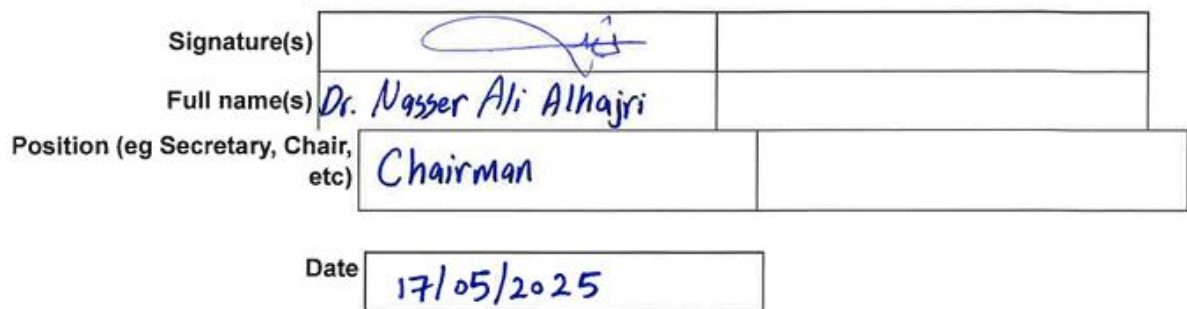 Signature(s)
Full name(s) Dr. Nasser Ali Alhajri
Position (eg Secretary, Chair,
etc) Chairman
Date 17/05/2025